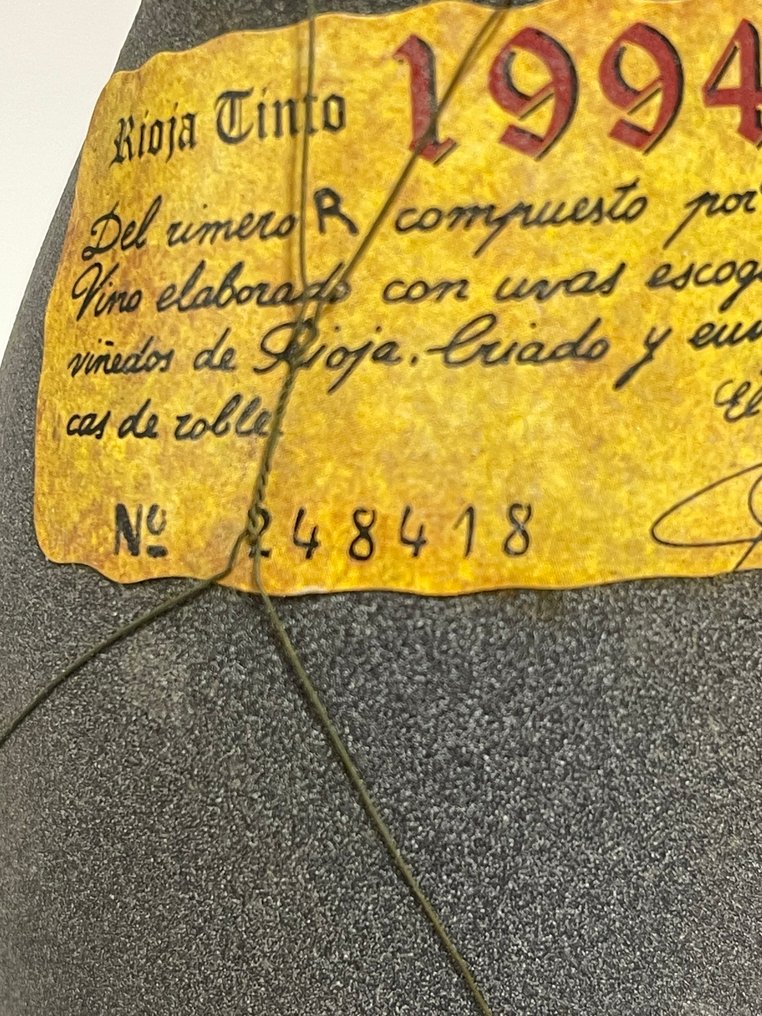 Rioja Tinto 1994
Del rimero R compuesto por
Vino elaborado con uvas escog
viñedos de Rioja. Criado y en
cas de roble.
El
Nº 248418